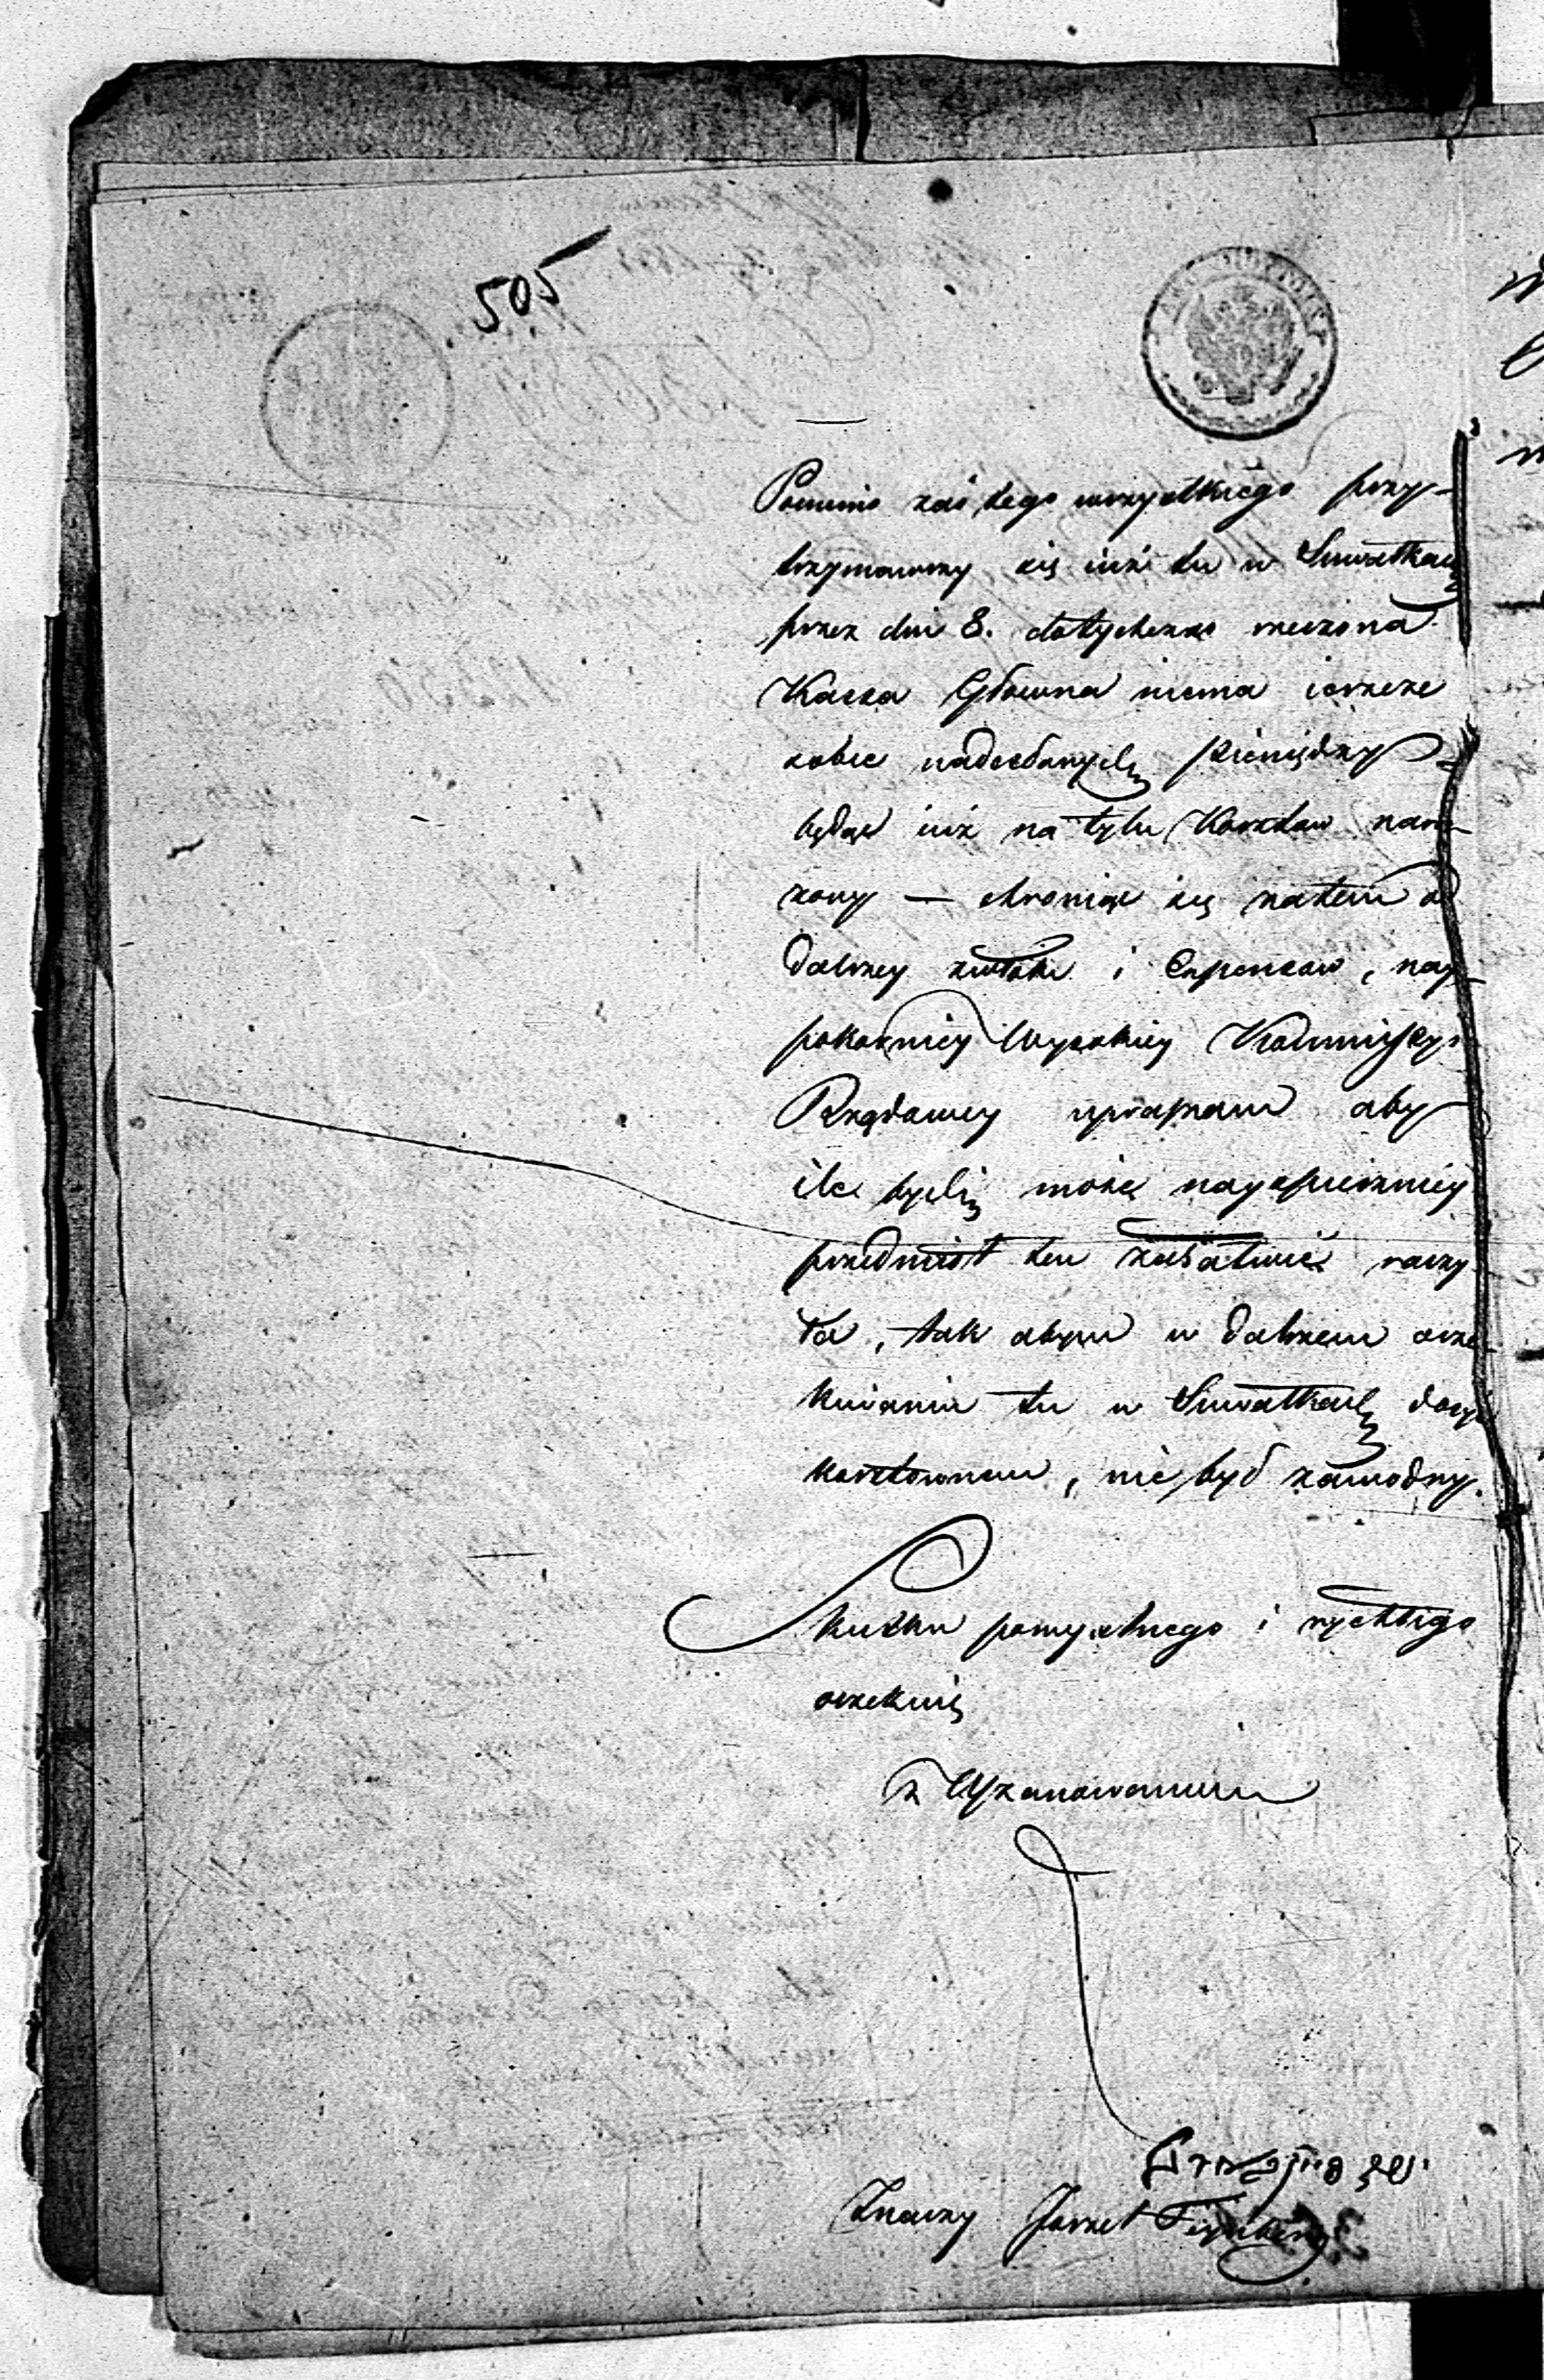 505
Pomimo zaś tego wszystkiego przy-
trzymawszy się iuż tu w Suwałkach
przez dni 8. dotychczas rzeczona
Kassa Główna niema ieszcze
sobie nadesłanych Pieniędzy
będąc iuż na tylu Kosztów nara-
żony — chroniąc się zatem od
dalszey zwłoki i Expensów, nay-
pokorniey Wysokiey Kommissyi
Rządowey upraszam aby
ile bydź może nayspieszniey
przedmiot ten załatwić raczy-
ła, tak abym w dalszem ocze-
kiwaniu tu w Suwałkach dosyć
kosztownem, nie był zawodny.
Skutku pomyślnego i rychłego
oczekuię
z Uszanowaniem
Znaczy Joszel